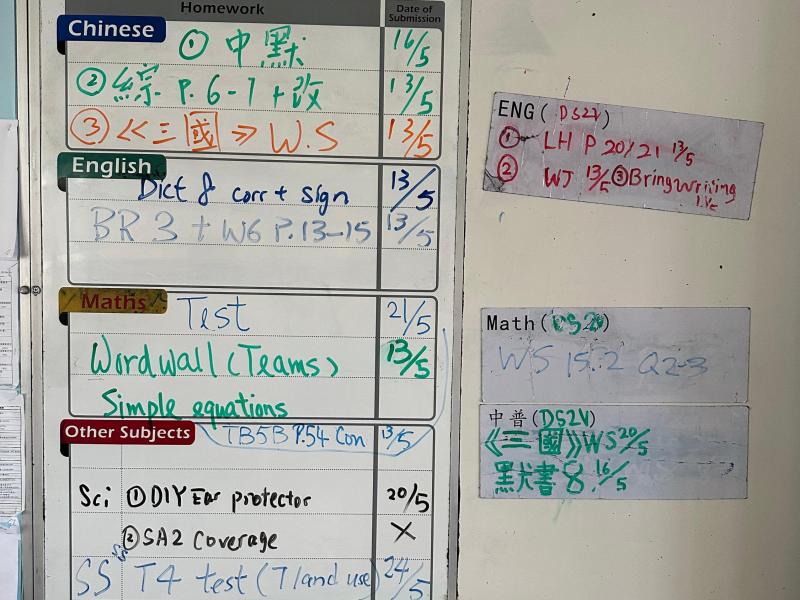 Homework
Date of Submission
Chinese
① 中默 16/5
② 綜 P.6-7 + 改 13/5
③ 《三國》 W.S 13/5
English
Dict 8 corr + sign 13/5
BR 3 + W6 P.13-15 13/5
Maths
Test 21/5
Wordwall (Teams) 13/5
Simple equations
TB5B P.54 Con 13/5
Other Subjects
Sci ① DIY Ear protector 20/5
② SA2 Coverage ×
SS T4 test (T1 land use) 24/5
ENG (DS2V)
① LH P 20/21 13/5
② WJ 13/5 ③ Bring writing
Math (DS2V)
WS 15.2 Q2-3
中普 (DS2V)
《三國》WS 20/5
默書 8. 16/5